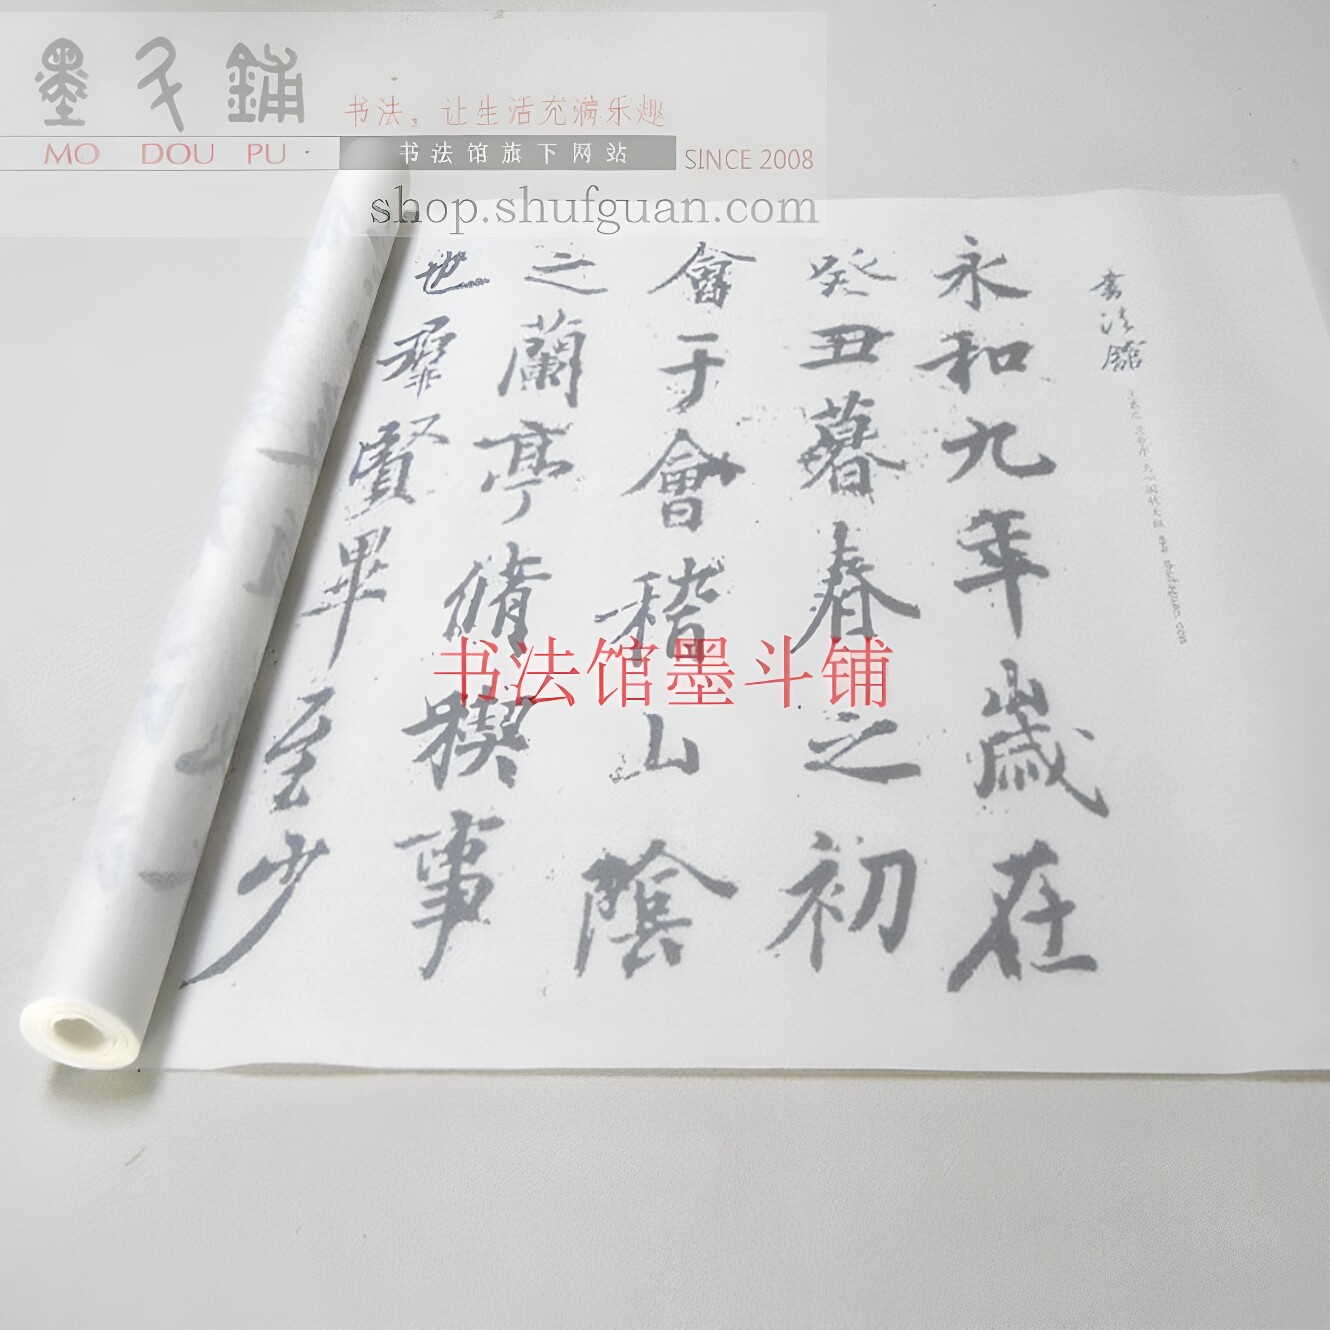 墨斗铺
书法，让生活充满乐趣
MO DOU PU ·
书法馆旗下网站
SINCE 2008
shop.shufguan.com
書法館
永和九年歲在
癸丑暮春之初
會于會稽山陰
之蘭亭脩稧事
也羣賢畢至少
书法馆墨斗铺